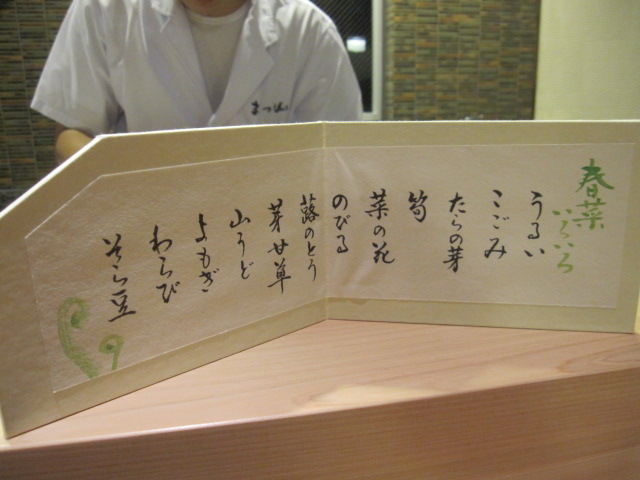 春菜
いろいろ
うるい
こごみ
たらの芽
筍
菜の花
のびる
蕗のとう
芽甘草
山うど
よもぎ
わらび
そら豆